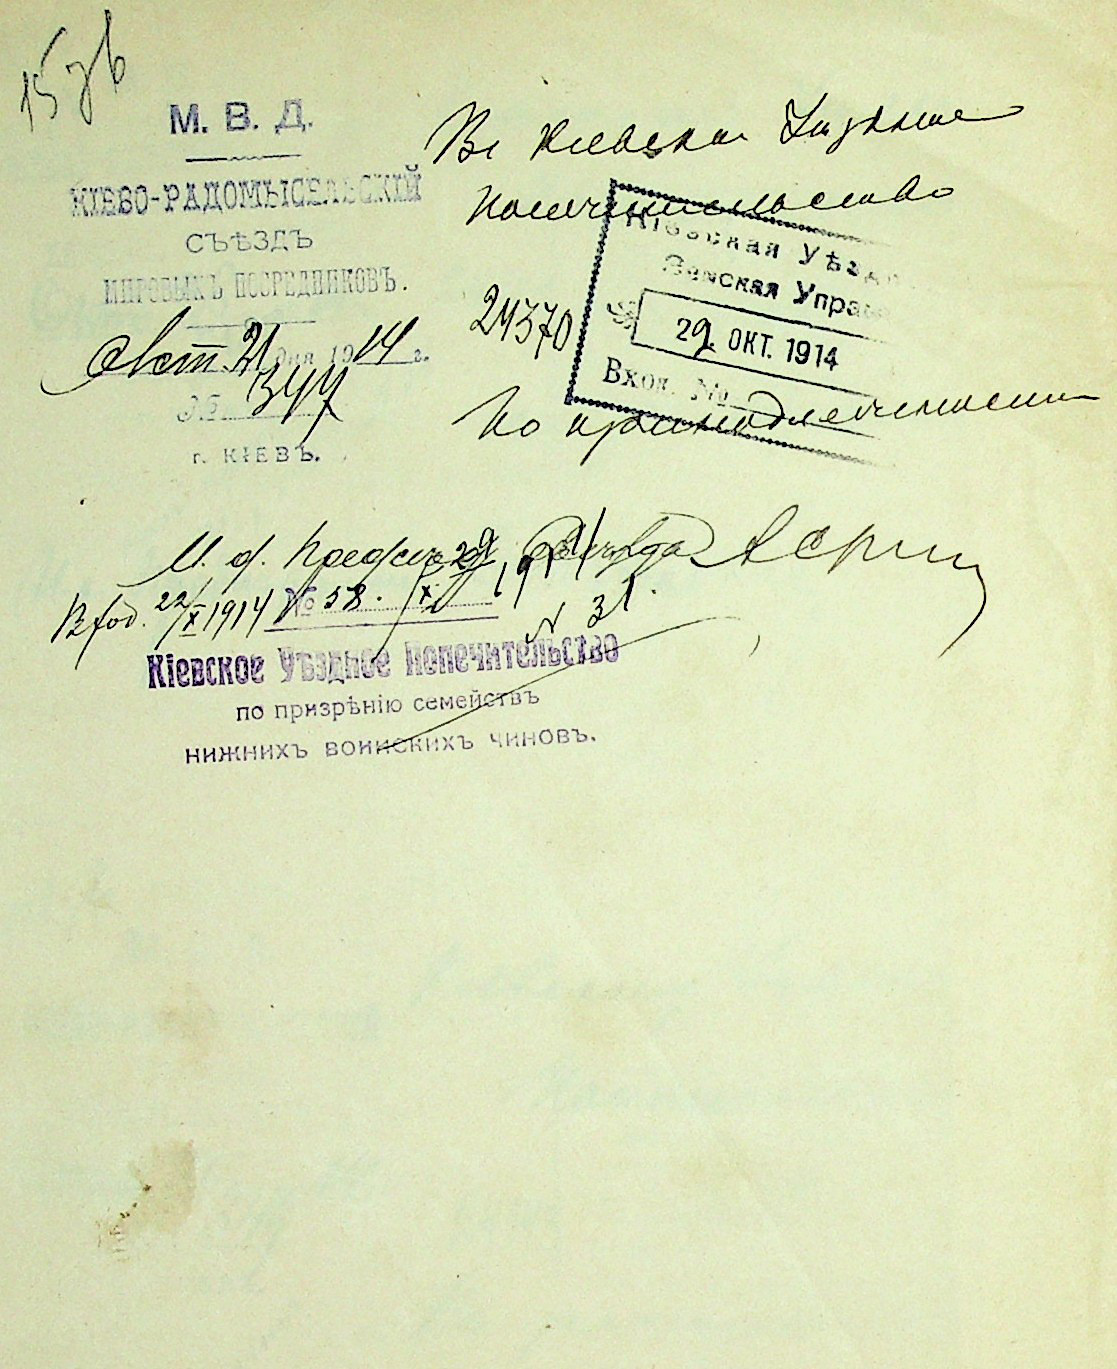 15 зв
М. В. Д.
КІЕВО-РАДОМЫСЕЛЬСКІЙ
СЪѢЗДЪ
МИРОВЫХЪ ПОСРЕДНИКОВЪ.
Окт. 21 дня 1914 г.
№ 347
г. КІЕВЪ.
Въ Кіевское Уѣздное
попечительство
Кіевская Уѣздн
Земская Управ
29 ОКТ. 1914
Вход. №
24370
По принадлежности
И. д. Предсѣд
Вход. 22/X 1914 № 58.
№ 31.
Кіевское Уѣздное Попечительство
по призрѣнію семействъ
нижнихъ воинскихъ чиновъ.